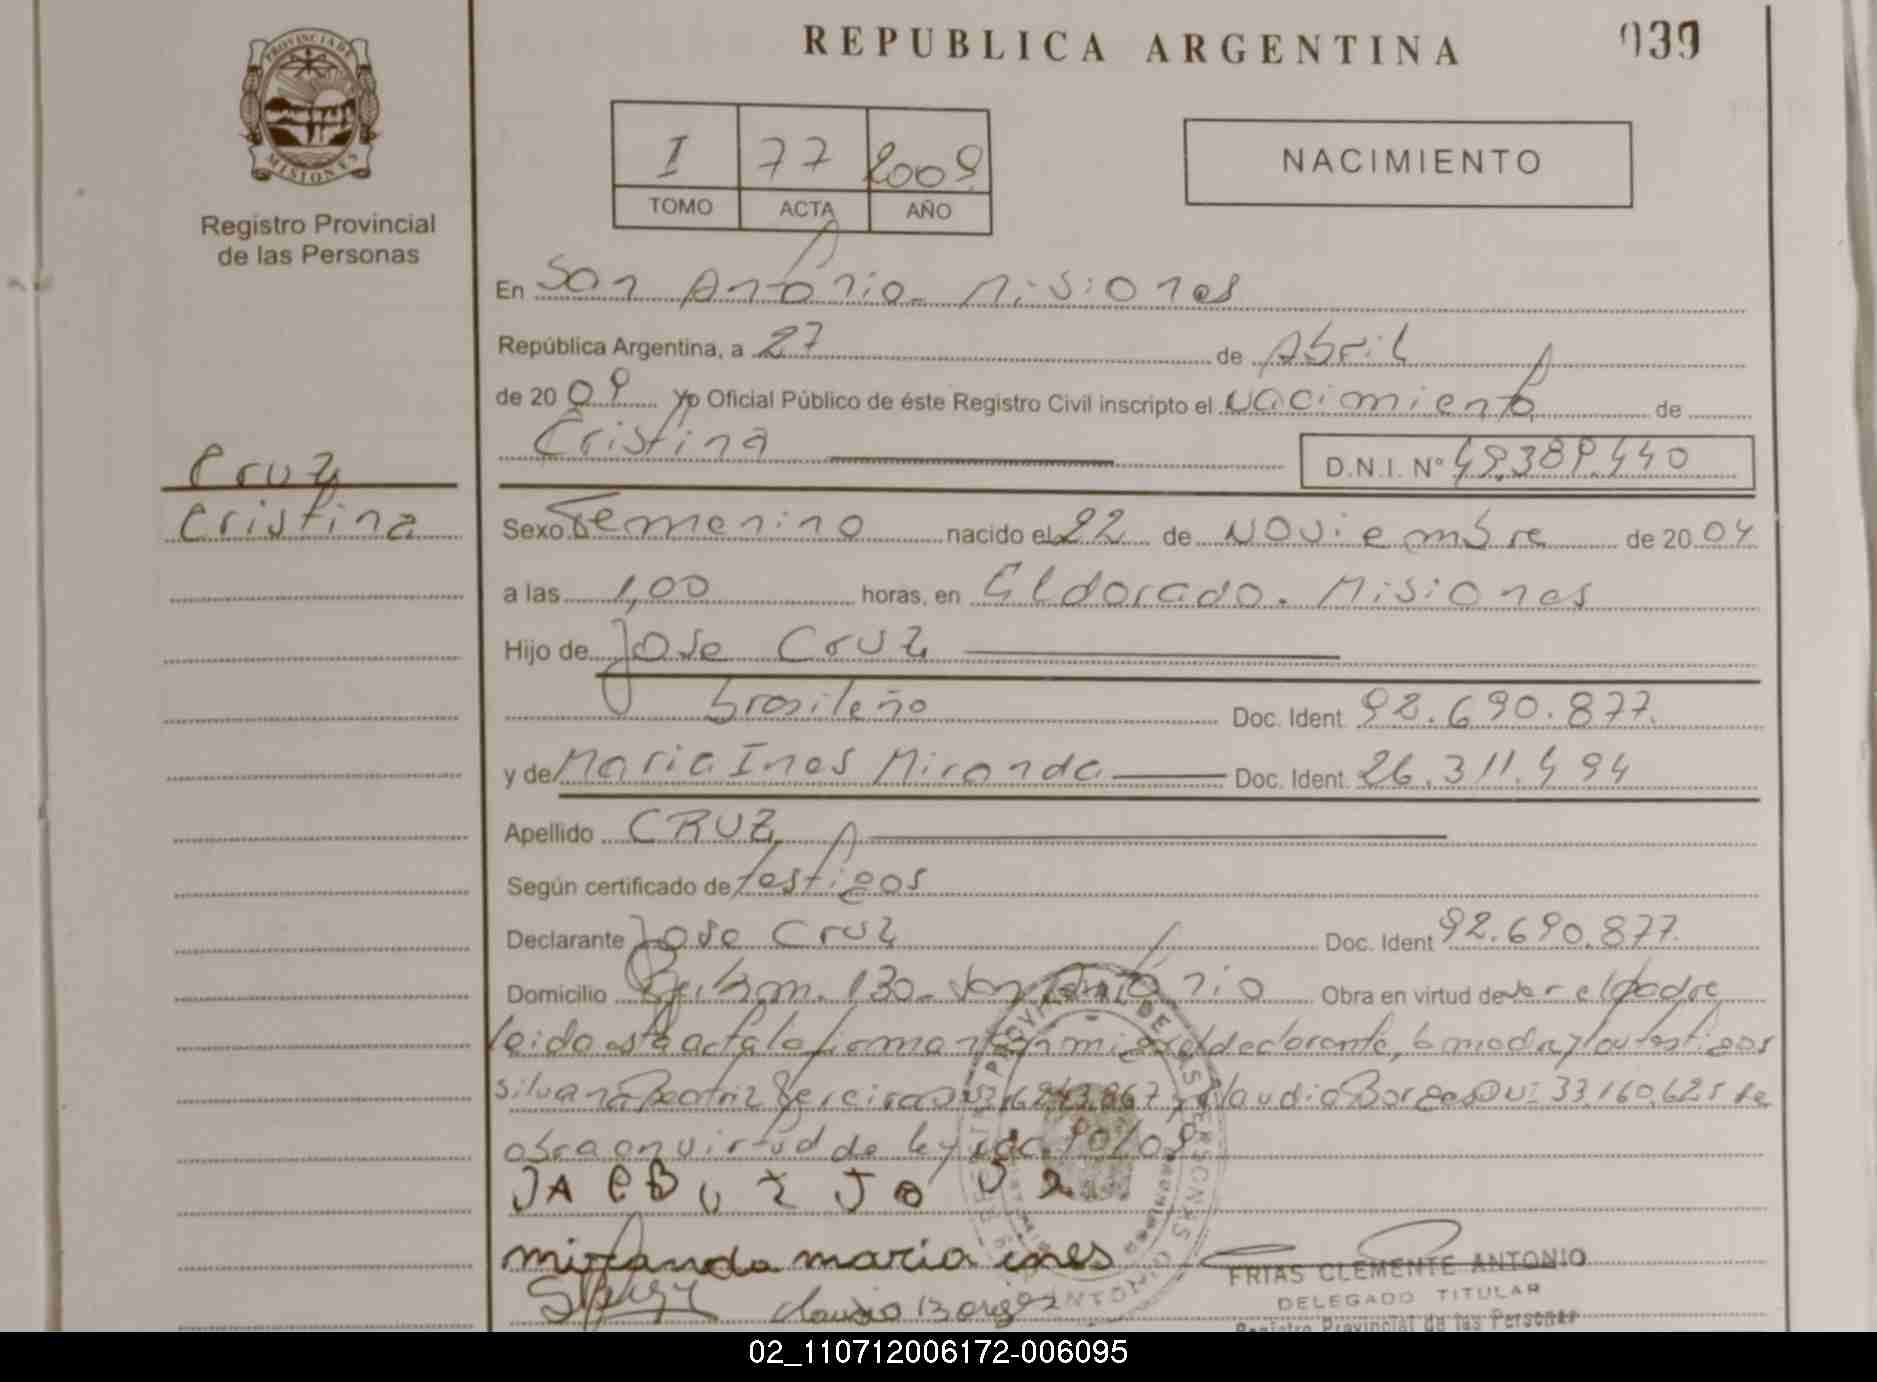 REPUBLICA ARGENTINA
039
PROVINCIA DE
MISIONES
Registro Provincial
de las Personas
I 77 2009
TOMO ACTA AÑO
NACIMIENTO
En San Antonio - Misiones
República Argentina, a 27 de Abril
de 2009 Yo Oficial Público de éste Registro Civil inscripto el nacimiento de
Cristina D.N.I. Nº 49.389.440
Cruz
Cristina
Sexo Femenino nacido el 22 de Noviembre de 2004
a las 1,00 horas, en Eldorado. Misiones
Hijo de Jose Cruz
brasileño Doc. Ident. 92.690.877.
y de Maria Ines Miranda Doc. Ident. 26.311.494
Apellido CRUZ
Según certificado de testigos
Declarante Jose Cruz Doc. Ident 92.690.877.
Domicilio 130 - San Antonio Obra en virtud de ser el padre
leida esta acta la firman con migo el declarante, la madre y los testigos
Silvana Beatriz Pereira y Claudio Borges DNI 33.160.625 se
obra en virtud de ley
miranda maria ines
Claudio Borges
FRIAS CLEMENTE ANTONIO
DELEGADO TITULAR
Registro Provincial de las Personas
02_110712006172-006095